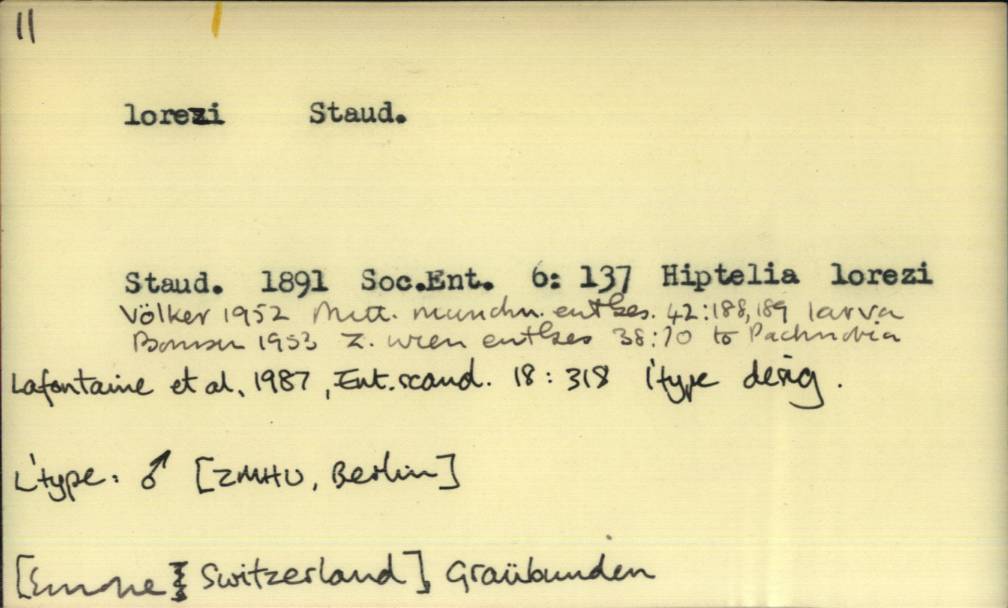 11
lorezi Staud.
Staud. 1891 Soc.Ent. 6: 137 Hiptelia lorezi
Völker 1952 Mitt. munchn. entGes. 42:188,189 larva
1953 Z. wien entGes 38:70 to Pachnobia
Lafontaine et al., 1987, Ent. scand. 18: 318 l'type desig.
L'type: ♂ [ZMHU, Berlin]
[Europe Switzerland], Graübunden